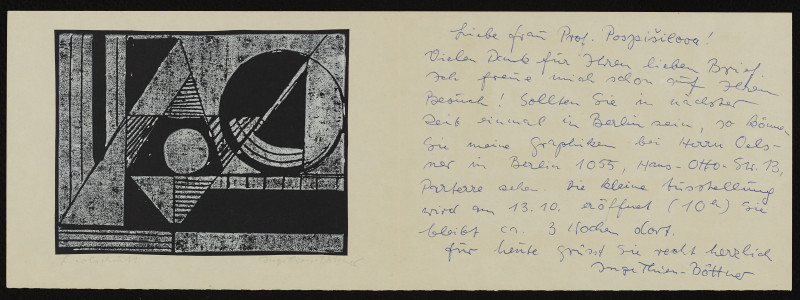 Liebe Frau Prof. Pospišilova!
Vielen Dank für Ihren lieben Brief.
Ich freue mich schon auf Ihren
Besuch! Sollten Sie in nächster
Zeit einmal in Berlin sein, so können
Sie meine Graphiken bei Herrn Oels-
ner in Berlin 1055, Hans-Otto-Str. 13,
Parterre sehen. Die kleine Ausstellung
wird am 13.10. eröffnet (10h) Sie
bleibt ca. 3 Wochen dort.
Für heute grüsst Sie recht herzlich
Inge Thiess-Böttner